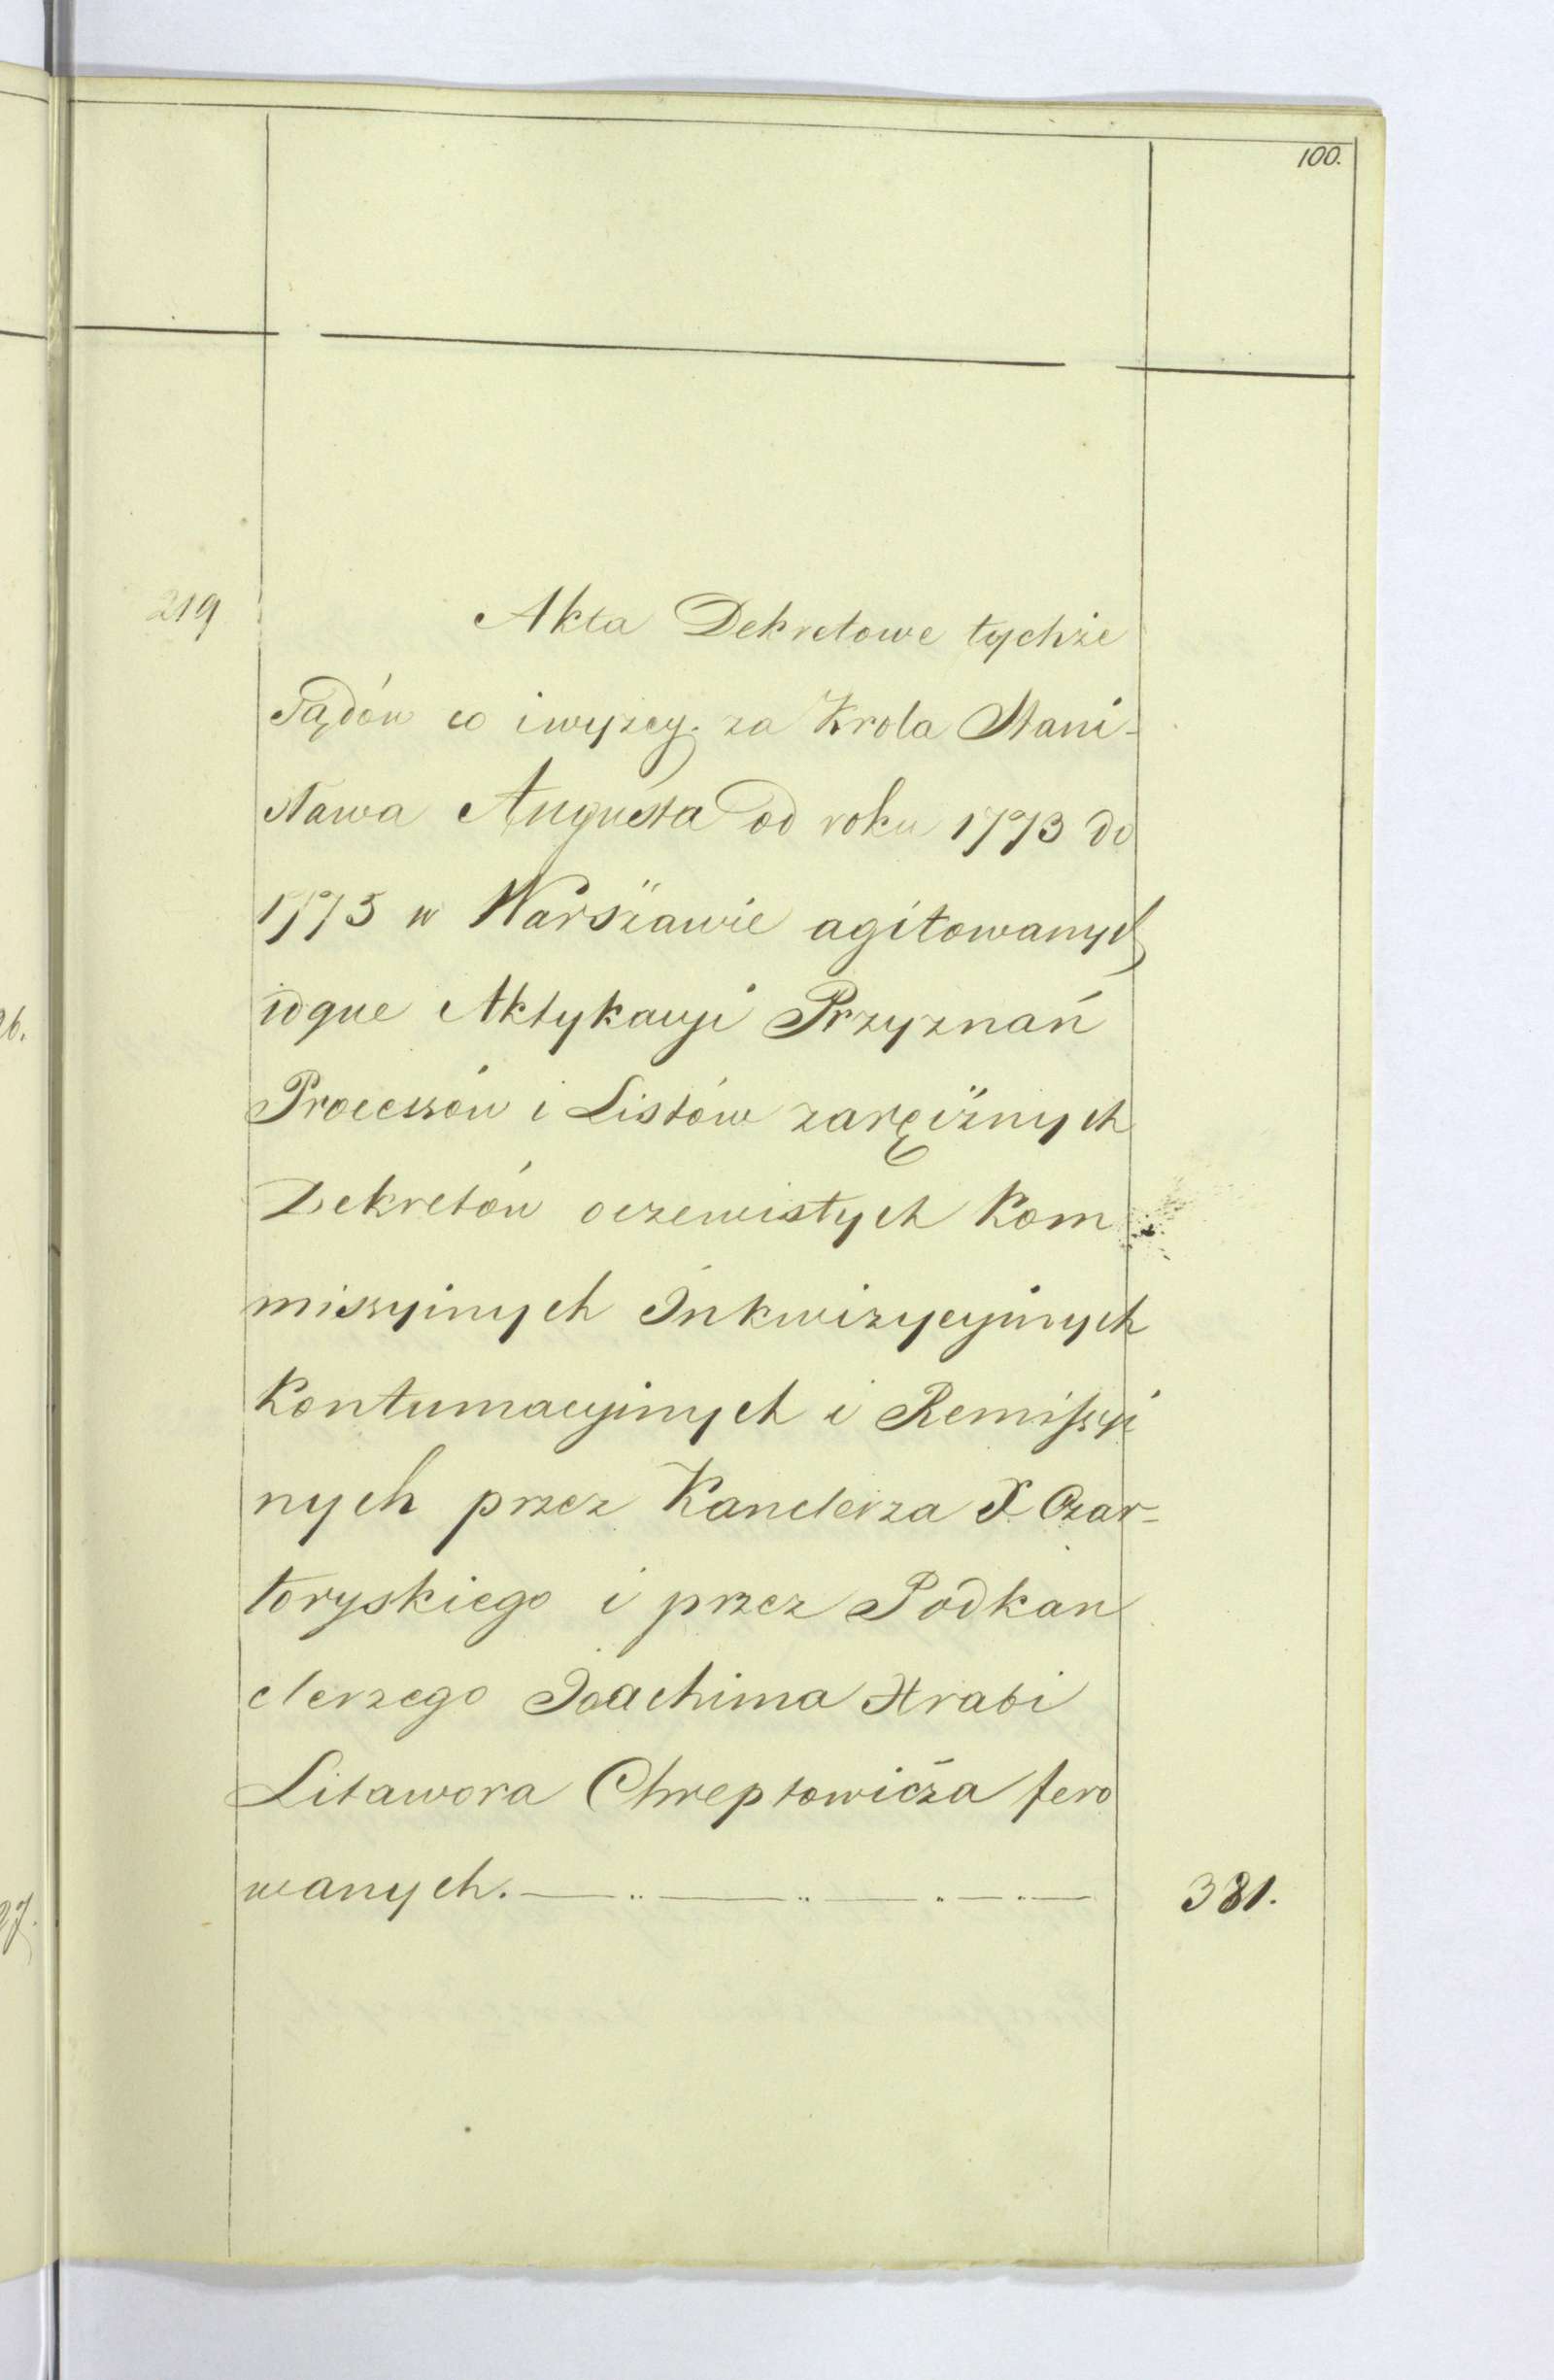 100.
219
Akta Dekretowe tychże
Sądów co i wyżey. za Krola Stani-
sława Augusta od roku 1773 do
1775 w Warszawie agitowanych
idque Aktykacyi Przyznań
Processów i Listów zaręcznych
Dekretów oczewistych Kom
missyinych Inkwizycyinych
Kontumacyinych i Remissyi
nych przez Kanclerza X Czar-
toryskiego i przez Podkan
clerzego Joachima Hrabi
Litawora Chreptowicza fero
wanych.
381.